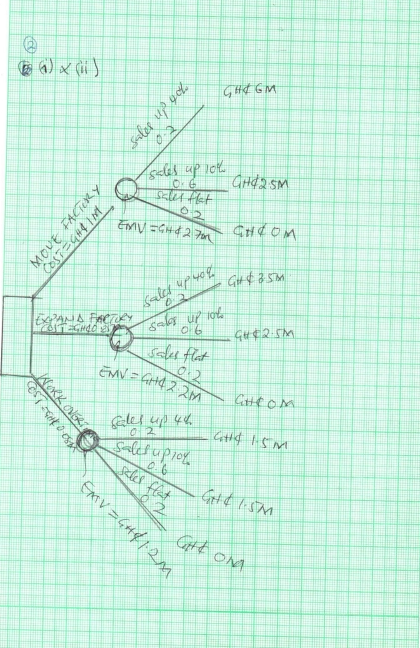 ②
(i) & (ii)
sales up 40%
0.2
GH¢ 6M
sales up 10%
0.6
GH¢ 2.5M
sales flat
0.2
GH¢ 0M
EMV = GH¢ 2.7M
MOVE FACTORY
COST = GH¢ 1M
sales up 40%
0.2
GH¢ 3.5M
EXPAND FACTORY
sales up 10%
0.6
GH¢ 2.5M
sales flat
0.2
GH¢ 0M
EMV = GH¢ 2.2M
sales up 4%
0.2
GH¢ 1.5M
sales up 10%
0.6
GH¢ 1.5M
sales flat
0.2
GH¢ 0M
EMV = GH¢ 1.2M